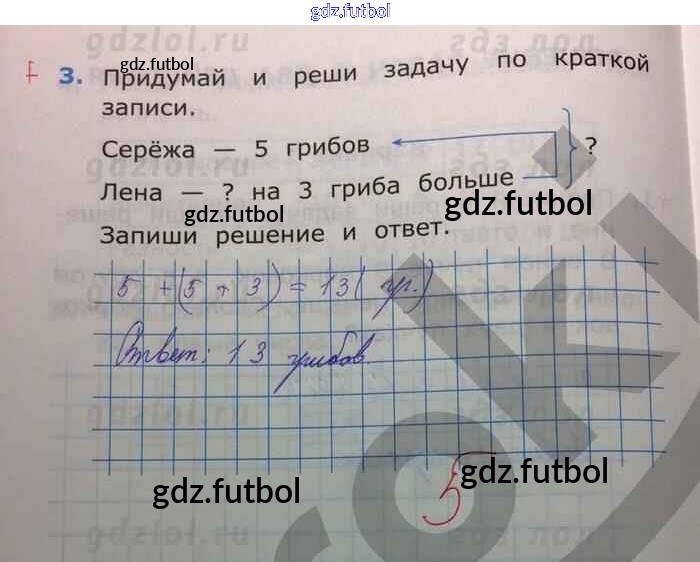 gdz.futbol
gdzlol.ru
gdz.futbol
3. Придумай и реши задачу по краткой
записи.
Серёжа — 5 грибов
?
Лена — ? на 3 гриба больше
gdz.futbol
gdz.futbol
Запиши решение и ответ.
5 + (5 + 3) = 13 (гр.)
Ответ: 13 грибов
gdzlol.ru
gdz.futbol
gdz.futbol
5
gdzlol.ru